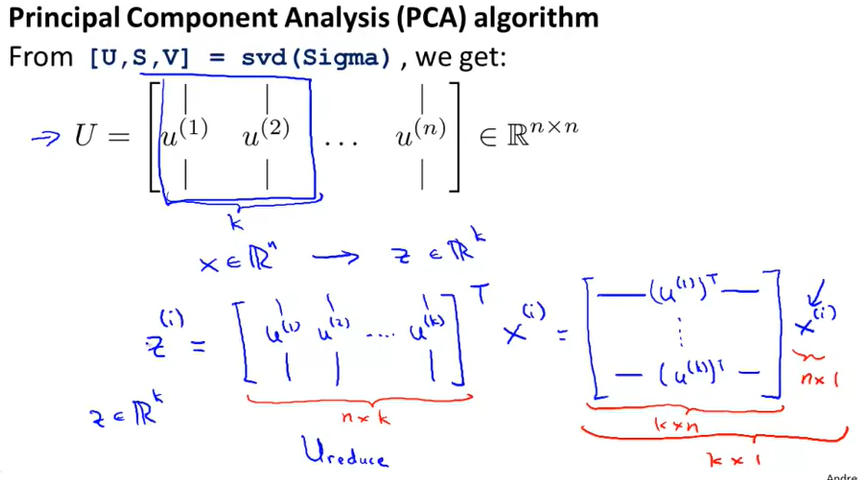 Principal Component Analysis (PCA) algorithm
From [U,S,V] = svd(Sigma), we get:
→ U = [ u^(1) u^(2) … u^(n) ] ∈ ℝ^{n×n}
k
x ∈ ℝ^n → z ∈ ℝ^k
z^(i) = [ u^(1) u^(2) .... u^(k) ]^T x^(i) = [ — (u^(1))^T — ⋮ — (u^(k))^T — ] x^(i)
z ∈ ℝ^k
n × k
k × n
n × 1
U reduce
k × 1
Andre